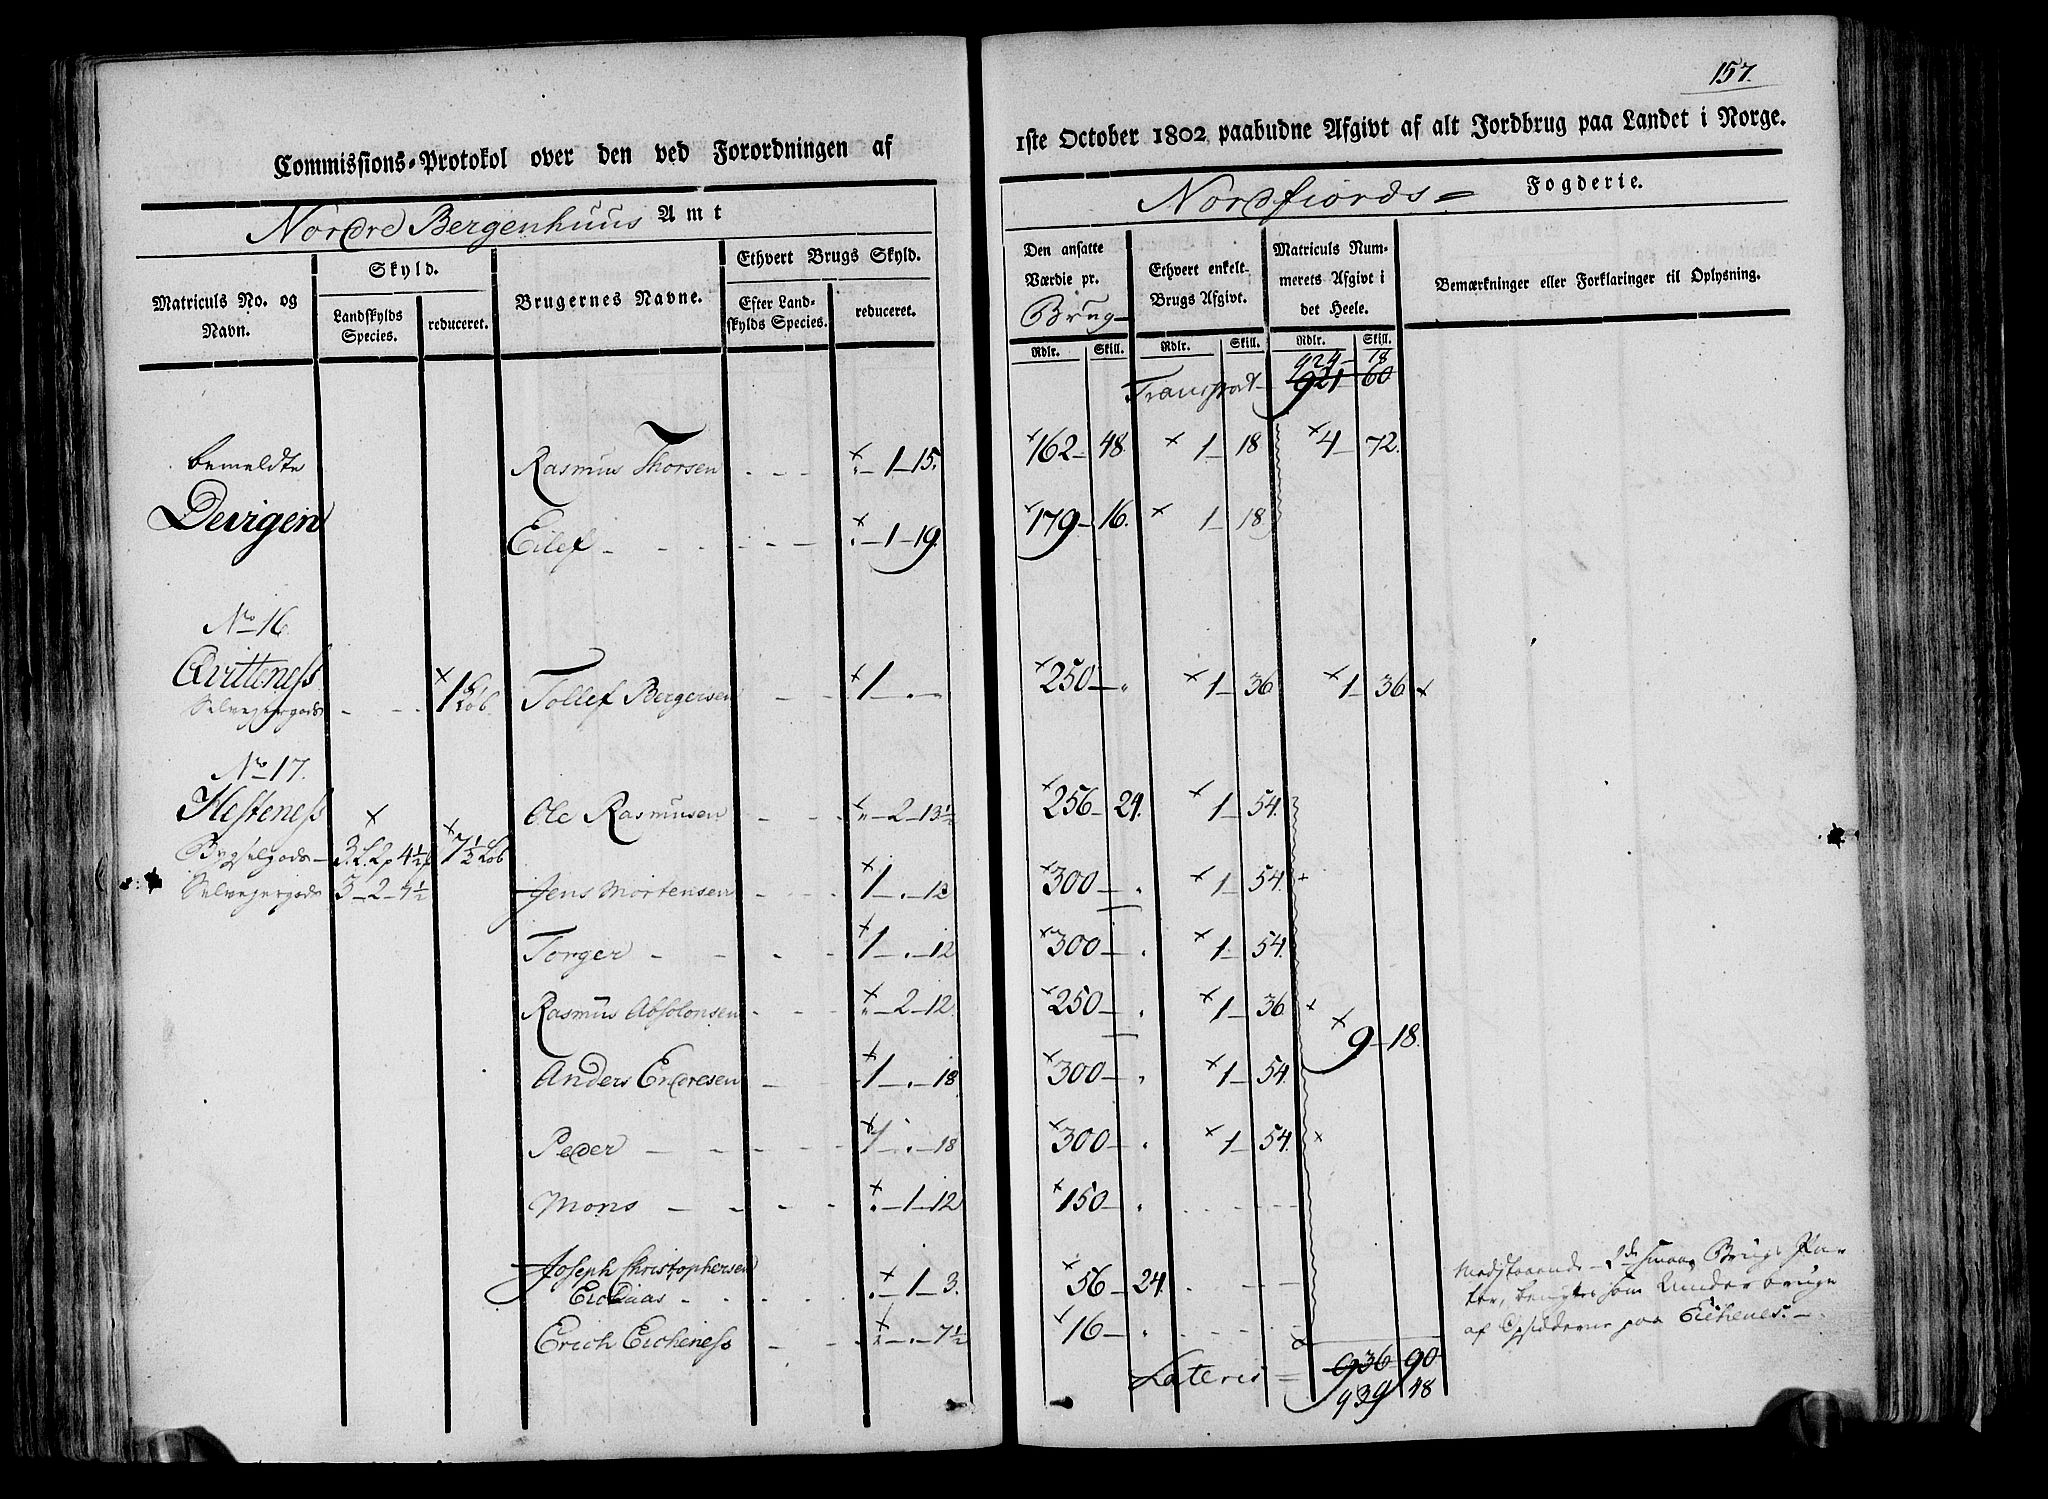 157.
Commissions-Protokol over den ved Forordningen af
1ste October 1802 paabudne Afgivt af alt Jordbrug paa Landet i Norge.
Nordre Bergenhuus Amt
Nordfiords Fogderie.
Matriculs No. og Navn.
Skyld.
Landskylds Species.
reduceret.
Brugernes Navne.
Ethvert Brugs Skyld.
Efter Landskylds Species.
reduceret.
Den ansatte Værdie pr. Brug
Ethvert enkelt Brugs Afgivt.
Matriculs Nummerets Afgivt i det Heele.
Bemærkninger eller Forklaringer til Oplysning.
Rdlr. Skill. Rdlr. Skill. Rdlr. Skill.
924 - 18
Transport - 921 - 60
bemeldte Rasmus Thorsen - - - × " - 1 - 15. × 162 - 48. × 1 - 18 × 4 - 72.
Devigen
Eilef - - - - - - × " - 1 - 19. × 179 - 16. × 1 - 18
No 16.
Qvitteness
Selvejergods - - - × 1 Løb. Tollef Bergersen - - × 1 - " - " × 250 - " × 1 - 36 × 1 - 36 ×
No 17.
Hesteness × Ole Rasmusen - - × " - 2 - 13½ × 256 - 24. × 1 - 54.
Bygselgods - 3. L. 2 p 4½ × 7½ Løb
Selvejergods 3 - 2 - 4½ Jens Mortensen - - × 1 - " - 12 × 300 - " × 1 - 54. ×
Torger - - - - × 1 - " - 12 × 300 - " × 1 - 54.
Rasmus Absolonsen - - × " - 2 - 12. × 250 - " × 1 - 36 ×
× 9 - 18.
Anders Endresen - - × 1 - " - 18 × 300 - " × 1 - 54.
Peder - - - - × 1 - " - 18 × 300 - " × 1 - 54. ×
Mons - - - - × " - 1 - 12 × 150 - "
Joseph Christophersen
Eidaas - - - - × " - 1 - 3. × 56 - 24.
Erich Eicheness - - × " - " - 7½ × 16 - "
Medstaaende 2de smaae Brugs Par
ter, bruges som Underbruge
af Opsidderne paa Eichenes. -
Lateris = 936 - 90
939 48